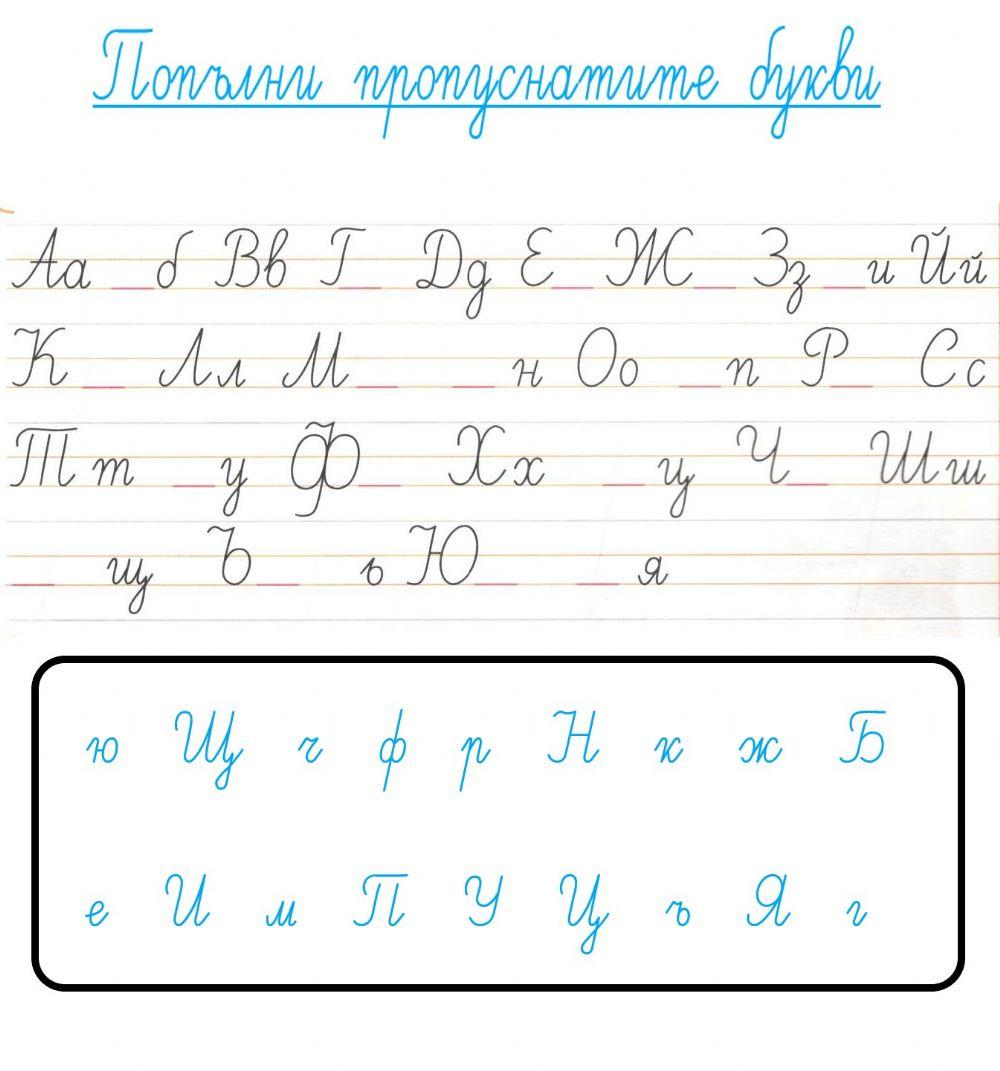 Попълни пропуснатите букви
Аа __б Вв Г__ Дд Е__ Ж__ Зз __и Йй
К__ Лл М__ __н Оо __п Р__ Сс
Тт __у Ф__ Хх __ц Ч__ Шш
__ щ Ъ__ ь Ю__ __я
ю Щ ч ф р Н к ж Б
е И м П У Ц ъ Я г